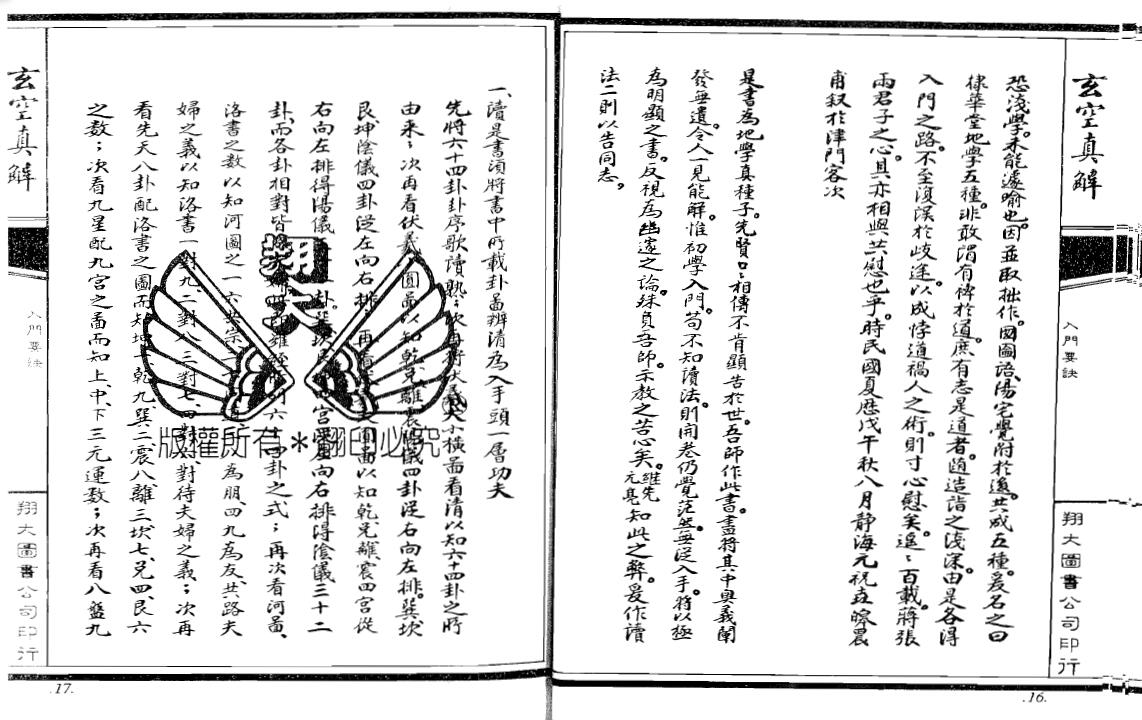 玄空真解
入門要訣
翔大圖書公司印行
恐淺學。未能遽喻也。因並取拙作。國圖語。陽宅覺附於後。共成五種。爰名之曰
棣華堂地學五種。非敢謂有裨於道。庶有志是道者。随造詣之淺深。由是各得
入門之路。不至復誤於歧途。以成悖道禍人之術。則寸心慰矣。遥:百載蔣張
兩君子之心。其亦相與共慰也乎。時民國夏歷戊午秋八月靜海元祝垚皞農
甫叙於津門客次
是書為地學真種子。先賢口:相傳不肯顯告於世。吾師作此書。盡將其中奧義闡
發無遺。令人一見能解。惟初學入門。苟不知讀法。則開卷仍覺茫然。無從入手。將以極
為明顯之書。反視為幽邃之論。殊負吾師示教之苦心矣。維先元亮知此之弊。爰作讀
法二則以告同志。
.16.
一、讀是書須將書中所載卦圖辨清為入手頭一層功夫
先將六十四卦卦序歌讀熟;次再將大小橫圖看清以知六十四卦之所
由來;次再看伏羲圓圖以知乾兌離震陽儀四卦從右向左排。巽坎
艮坤陰儀四卦從左向右排;再看圓圖以知乾兌離震四宮從
右向左排得陽儀三十二卦。巽坎艮坤四宮從左向右排得陰儀三十二
卦而各卦相對皆夫婦六十四卦之式;再次看河圖、
洛書之數以知河圖之一六共宗為朋、四九為友、共路夫
婦之義以知洛書一對九、二對八、三對七、四對六對待夫婦之義;次再
看先天八卦配洛書之圖而知坤一、乾九、巽二、震八、離三、坎七、兌四、艮六
之数;次看九星配九宮之圖而知上、中、下三元運数;次再看八盤九
玄空真解
入門要訣
翔大圖書公司印行
.17.
翔大
版權所有＊翻印必究